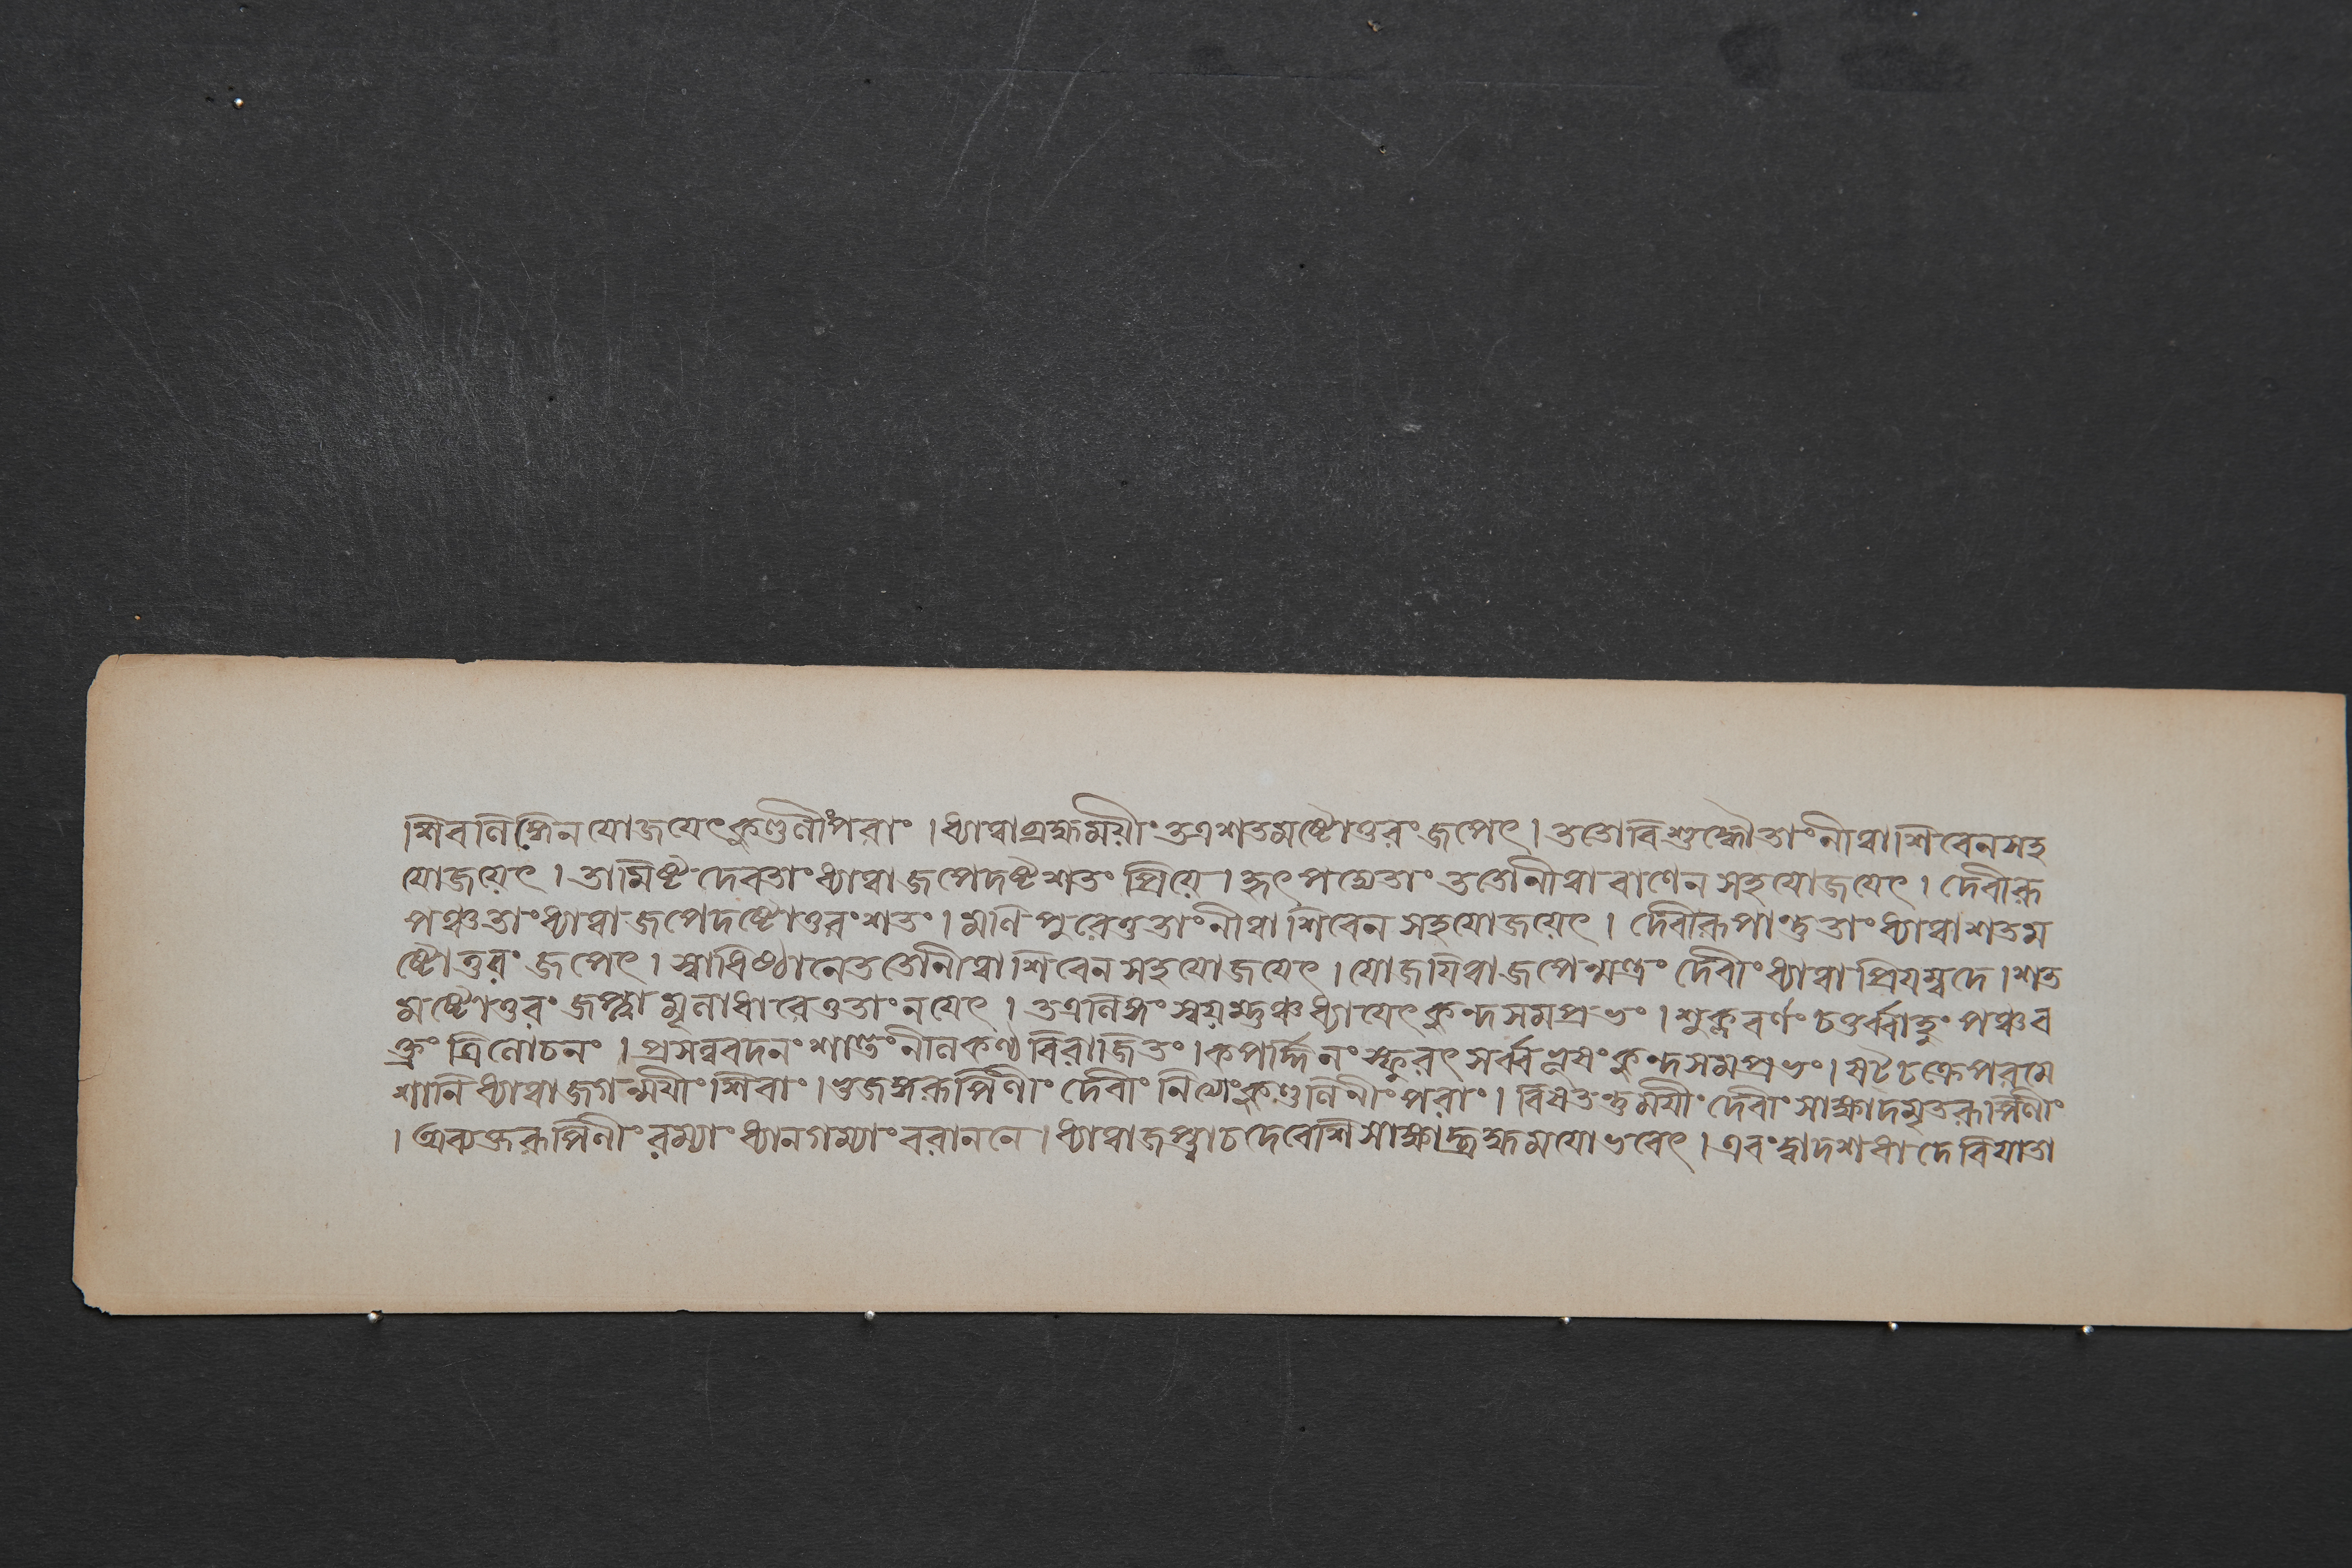 শিবলিঙ্গেন যোজয়েৎ কুণ্ডলীং পরাং । ধ্যাত্বা ব্রহ্মময়ীং তত্র শতমষ্টোত্তরং জপেৎ । ততো বিশুদ্ধৌ তাং নীত্বা শিবেন সহ
যোজয়েৎ । তামিষ্টদেবতাং ধ্যাত্বা জপেদষ্টশতং প্রিয়ে । হৃৎপদ্মে তাং ততো নীত্বা বাণেন সহ যোজয়েৎ । দেবীরূ
পঞ্চ তাং ধ্যাত্বা জপেদষ্টোত্তরং শতং । মণিপুরে তু তাং নীত্বা শিবেন সহ যোজয়েৎ । দেবীরূপান্তু তাং ধ্যাত্বা শতম
ষ্টোত্তরং জপেৎ । স্বাধিষ্ঠানে ততো নীত্বা শিবেন সহ যোজয়েৎ । যোজয়িত্বা জপেন্মন্ত্রং দেবীং ধ্যাত্বা প্রিয়ম্বদে । শত
মষ্টোত্তরং জপ্ত্বা মূলাধারে তু তাং নয়েৎ । তত্র লিঙ্গং স্বয়ম্ভুঞ্চ ধ্যায়েৎ কুন্দসমপ্রভং । শুক্লবর্ণং চতুর্ব্বাহুং পঞ্চব
ক্ত্রং ত্রিলোচনং । প্রসন্নবদনং শান্তং নীলকণ্ঠবিরাজিতং । কপর্দ্দিনং স্ফুরৎসর্ব্বলক্ষণং কুন্দসমপ্রভং । ষট্চক্রে পরমে
শানি ধ্যাত্বা জগন্ময়ীং শিবাং । ভুজঙ্গরূপিণীং দেবীং নিত্যাং কুণ্ডলিনীং পরাং । বিষতন্তুময়ীং দেবীং সাক্ষাদমৃতরূপিণীং
। অব্যক্তরূপিণীং রম্যাং ধ্যানগম্যাং বরাননে । ধ্যাত্বা জপ্ত্বা চ দেবেশি সাক্ষাদ্ব্রহ্মময়ো ভবেৎ । এবং দ্বাদশধা দেবি যাতা